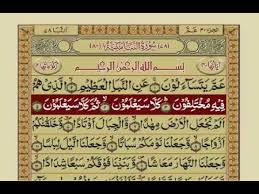 سُوْرَةُ النَّبَاِ مَكِّيَّةٌ
بِسْمِ اللهِ الرَّحْمٰنِ الرَّحِيْمِ
عَمَّ يَتَسَآءَلُوْنَ ۝ عَنِ النَّبَاِ الْعَظِيْمِ ۝ الَّذِيْ هُمْ
فِيْهِ مُخْتَلِفُوْنَ ۝ كَلَّا سَيَعْلَمُوْنَ ۝ ثُمَّ كَلَّا سَيَعْلَمُوْنَ ۝
اَلَمْ نَجْعَلِ الْاَرْضَ مِهٰدًا ۝ وَّالْجِبَالَ اَوْتَادًا ۝ وَّخَلَقْنٰكُمْ
اَزْوَاجًا ۝ وَّجَعَلْنَا نَوْمَكُمْ سُبَاتًا ۝ وَّجَعَلْنَا الَّيْلَ لِبَاسًا ۝
وَّجَعَلْنَا النَّهَارَ مَعَاشًا ۝ وَّبَنَيْنَا فَوْقَكُمْ سَبْعًا شِدَادًا ۝